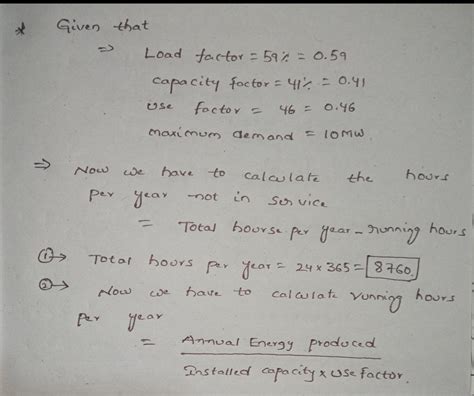 * Given that
⇒ Load factor = 59% = 0.59
capacity factor = 41% = 0.41
use factor = 46 = 0.46
maximum demand = 10MW
⇒ Now we have to calculate the hours
per year not in service
= Total hourse per year - running hours
①→ Total hours per year = 24 x 365 = 8760.
②→ Now we have to calculate running hours
per year
= Annual Energy produced
Installed capacity x use factor.